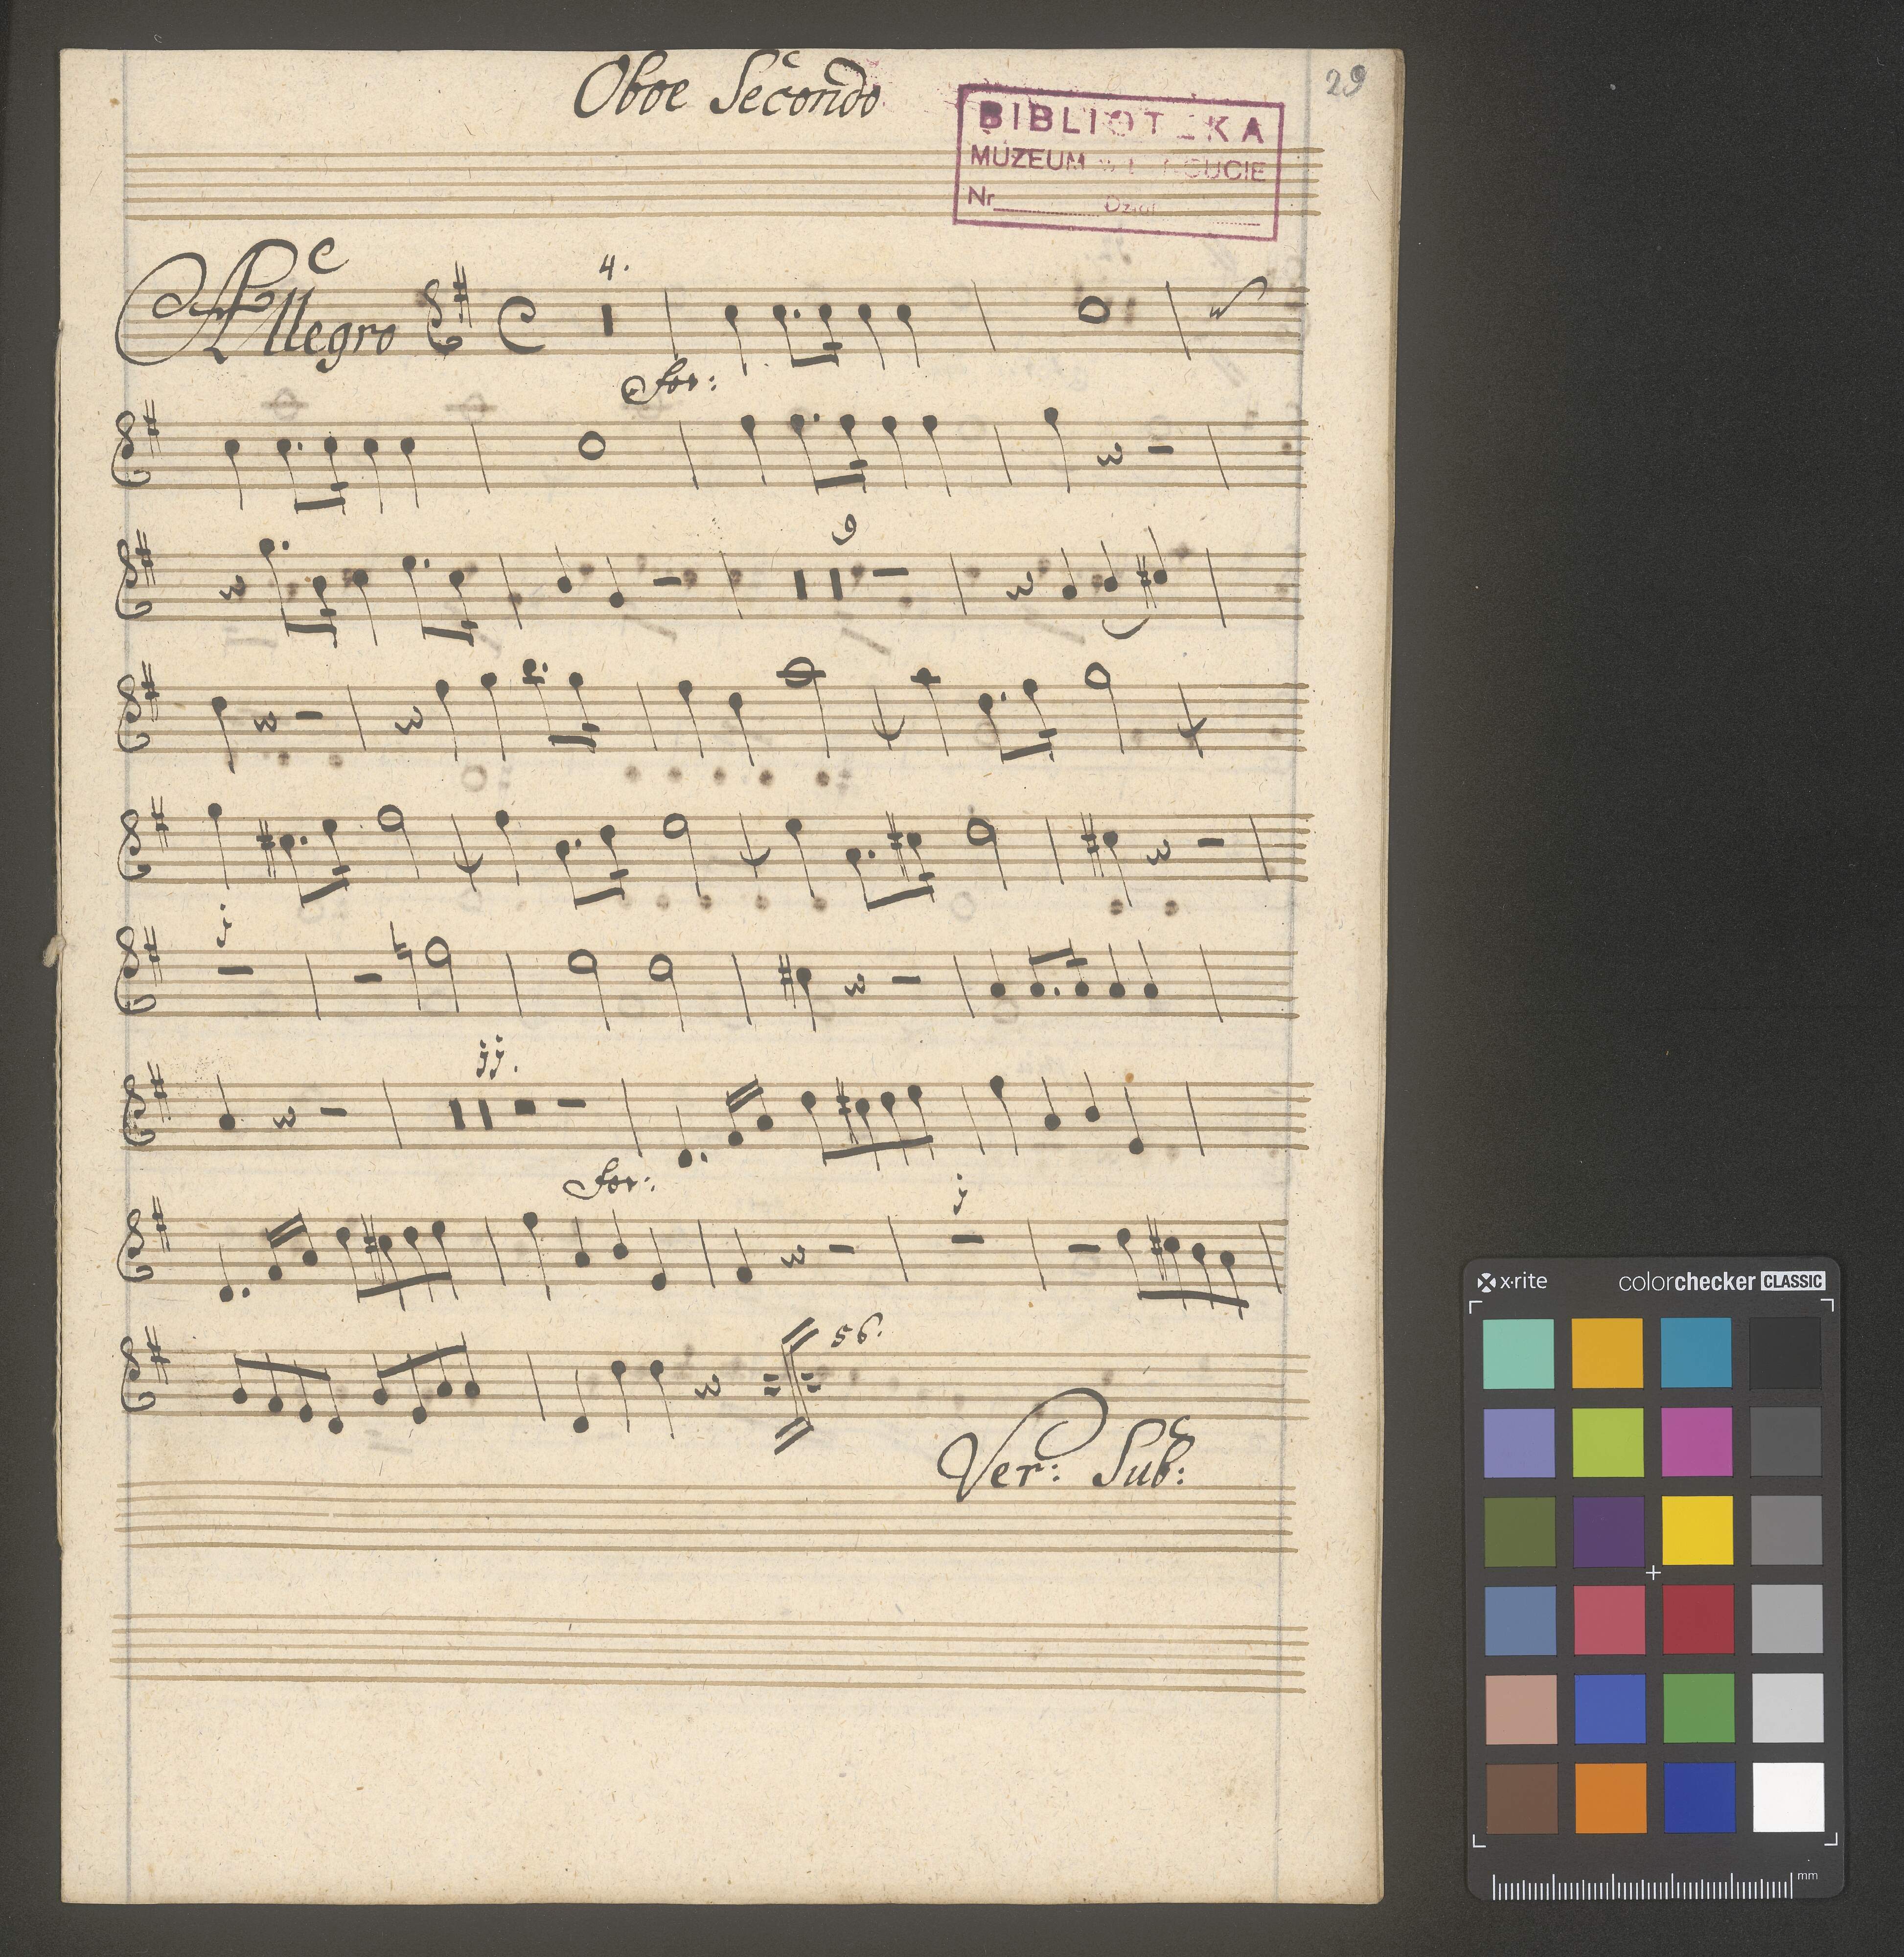 Oboe Secondo
29
BIBLIOTEKA
MUZEUM
Nr Dział
Allegro
4.
for:
9
j
jj.
for:
j
56.
Ver: Sub:
x-rite colorchecker CLASSIC
mm